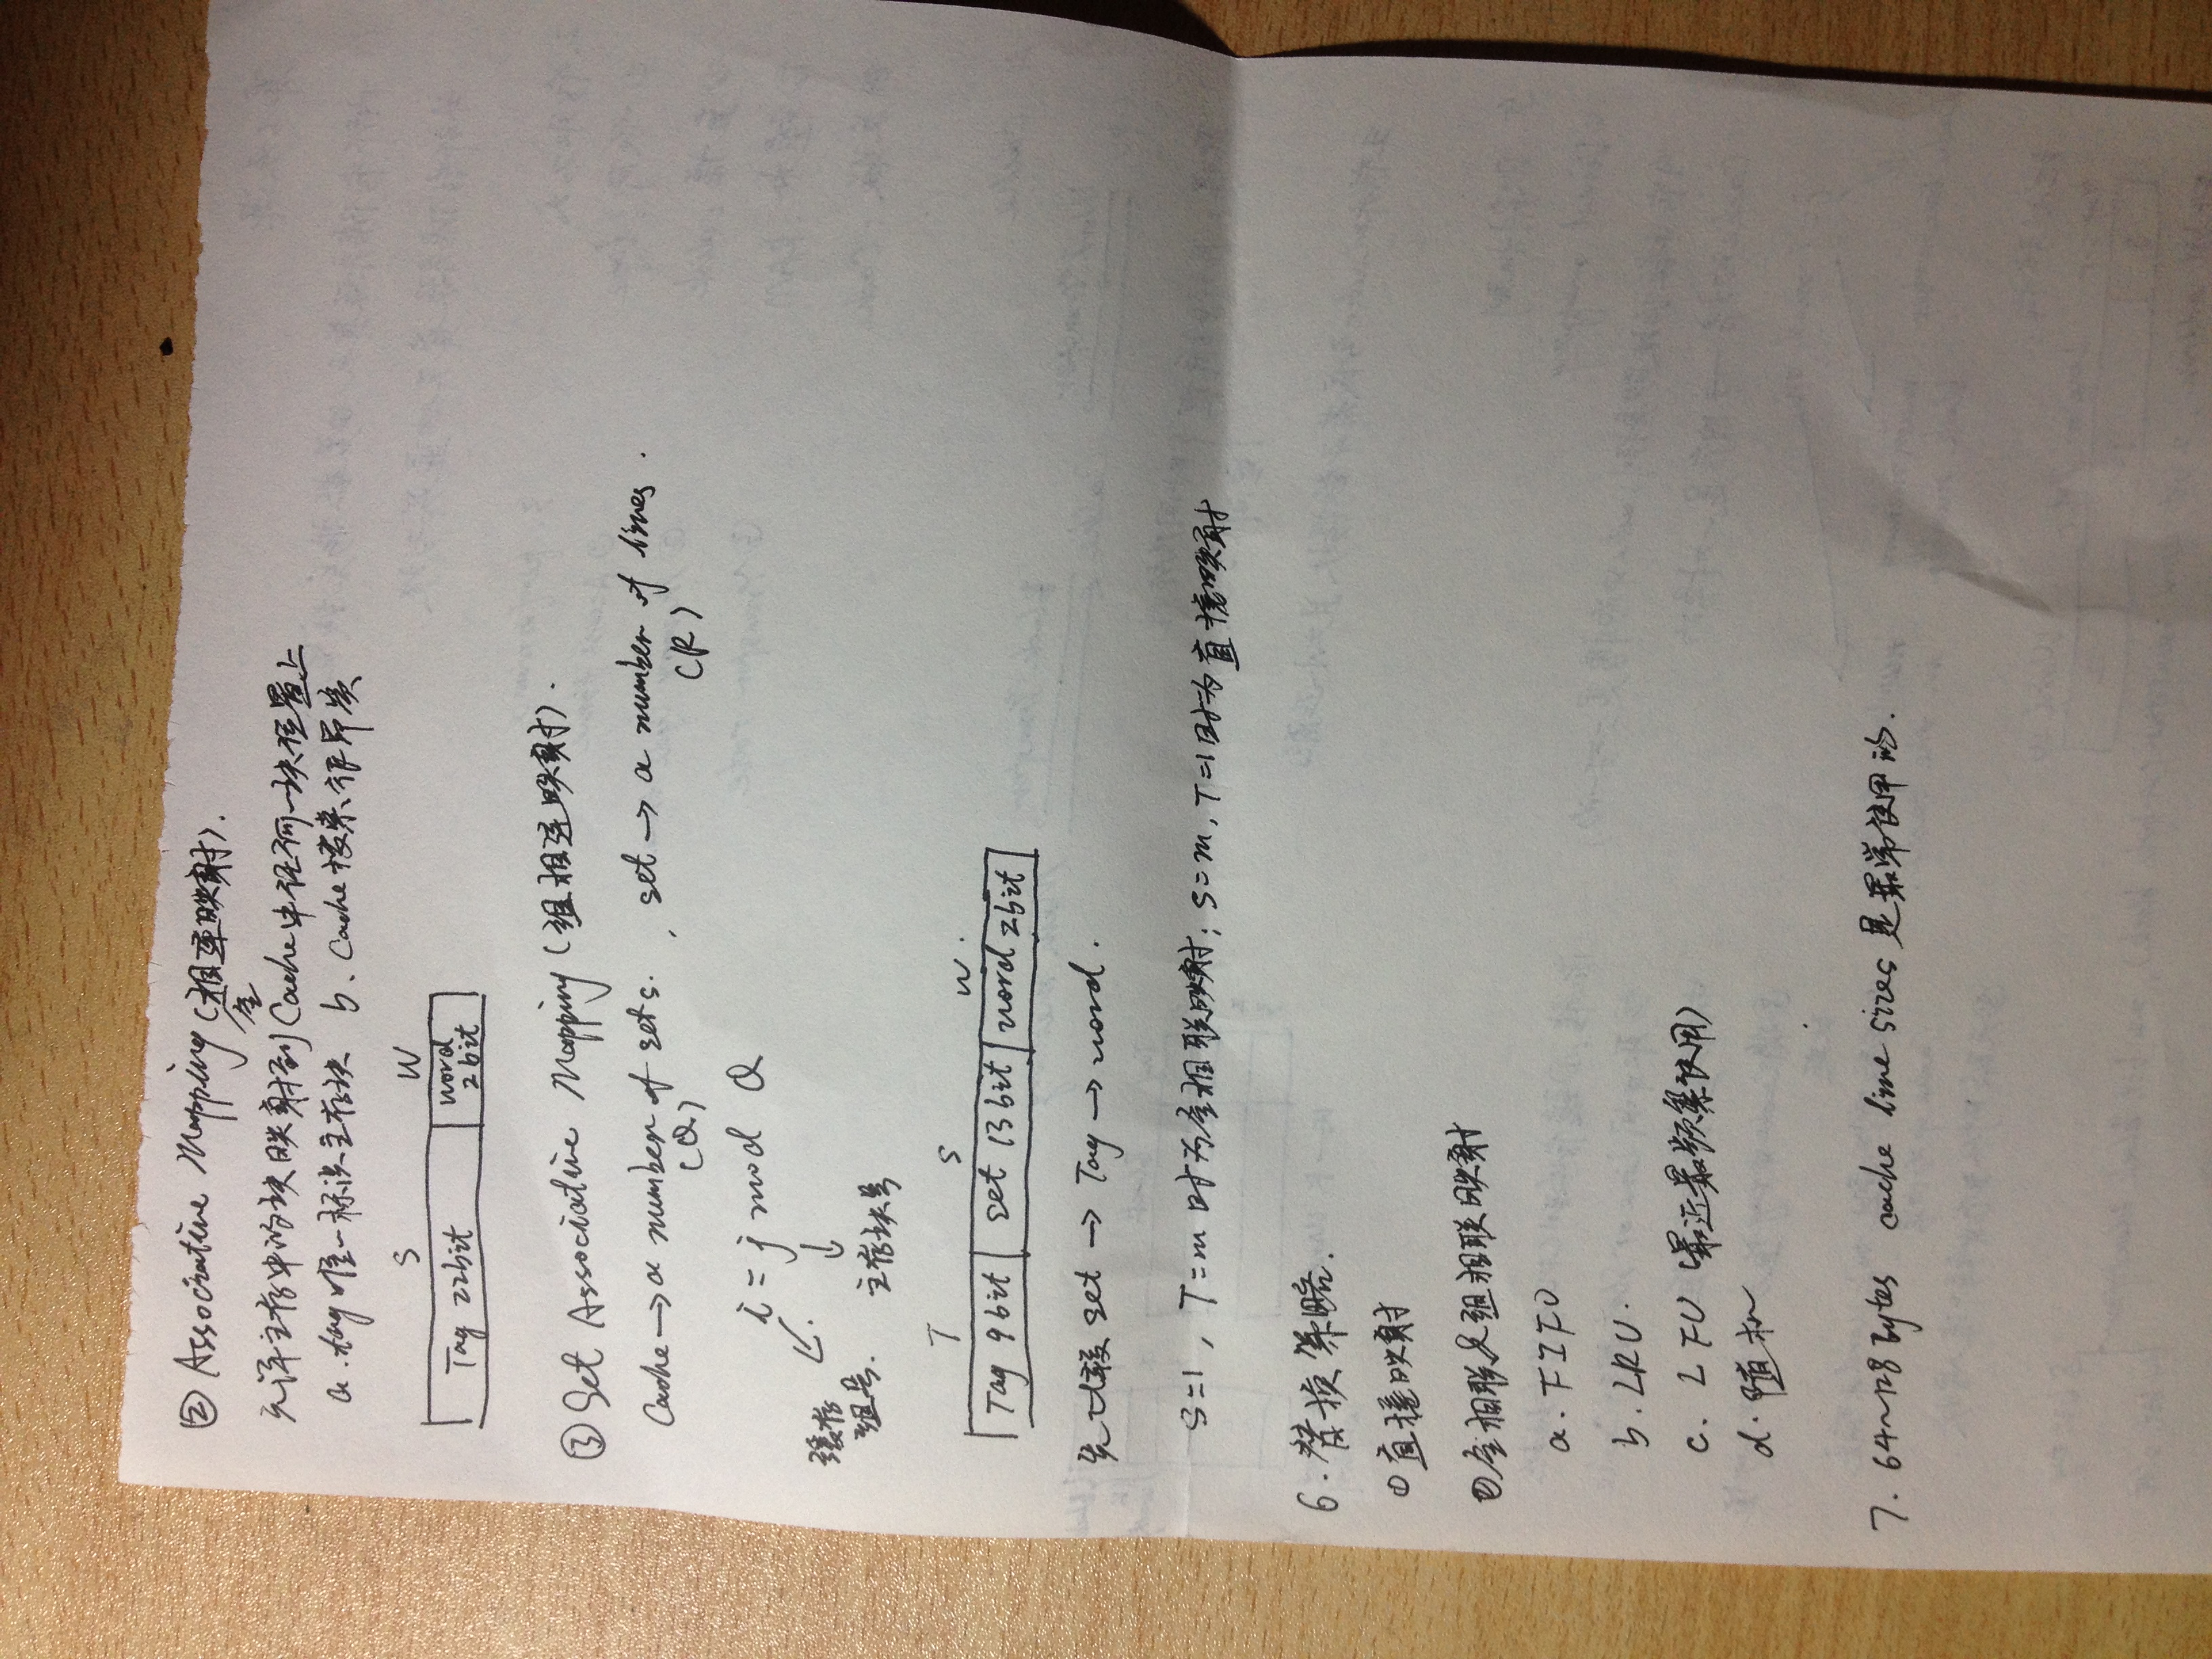 ② Associative Mapping (相连映射).
全
允许主存中的块映射到Cache中任何一块位置上
a. tag唯一标识主存块 b. Cache搜索很昂贵
S W
Tag 22bit word 2bit
③ Set Associative Mapping (组相连映射).
Cache → a number of sets. , set → a number of lines.
(Q) (R)
i = j mod Q
缓存组号. 主存块号
T S W.
Tag 9bit set 13bit word 2bit
先比较 set → Tag → word.
S=1, T=m时为全相联映射; S=m, T=1时为直接映射
6. 替换策略.
① 直接映射
② 全相联&组相联映射
a. FIFO
b. LRU.
c. LFU (最近最频繁使用)
d. 随机
7. 64~128 Bytes cache line sizes 是最常使用的.